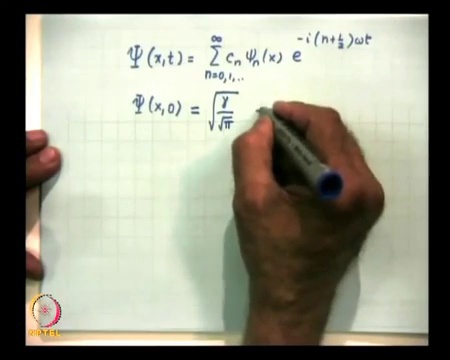 Ψ(x,t) = ∑_{n=0,1,..}^{∞} c_n ψ_n(x) e^{-i(n+1/2)ωt}
Ψ(x,0) = √(γ/√π)
NPTEL